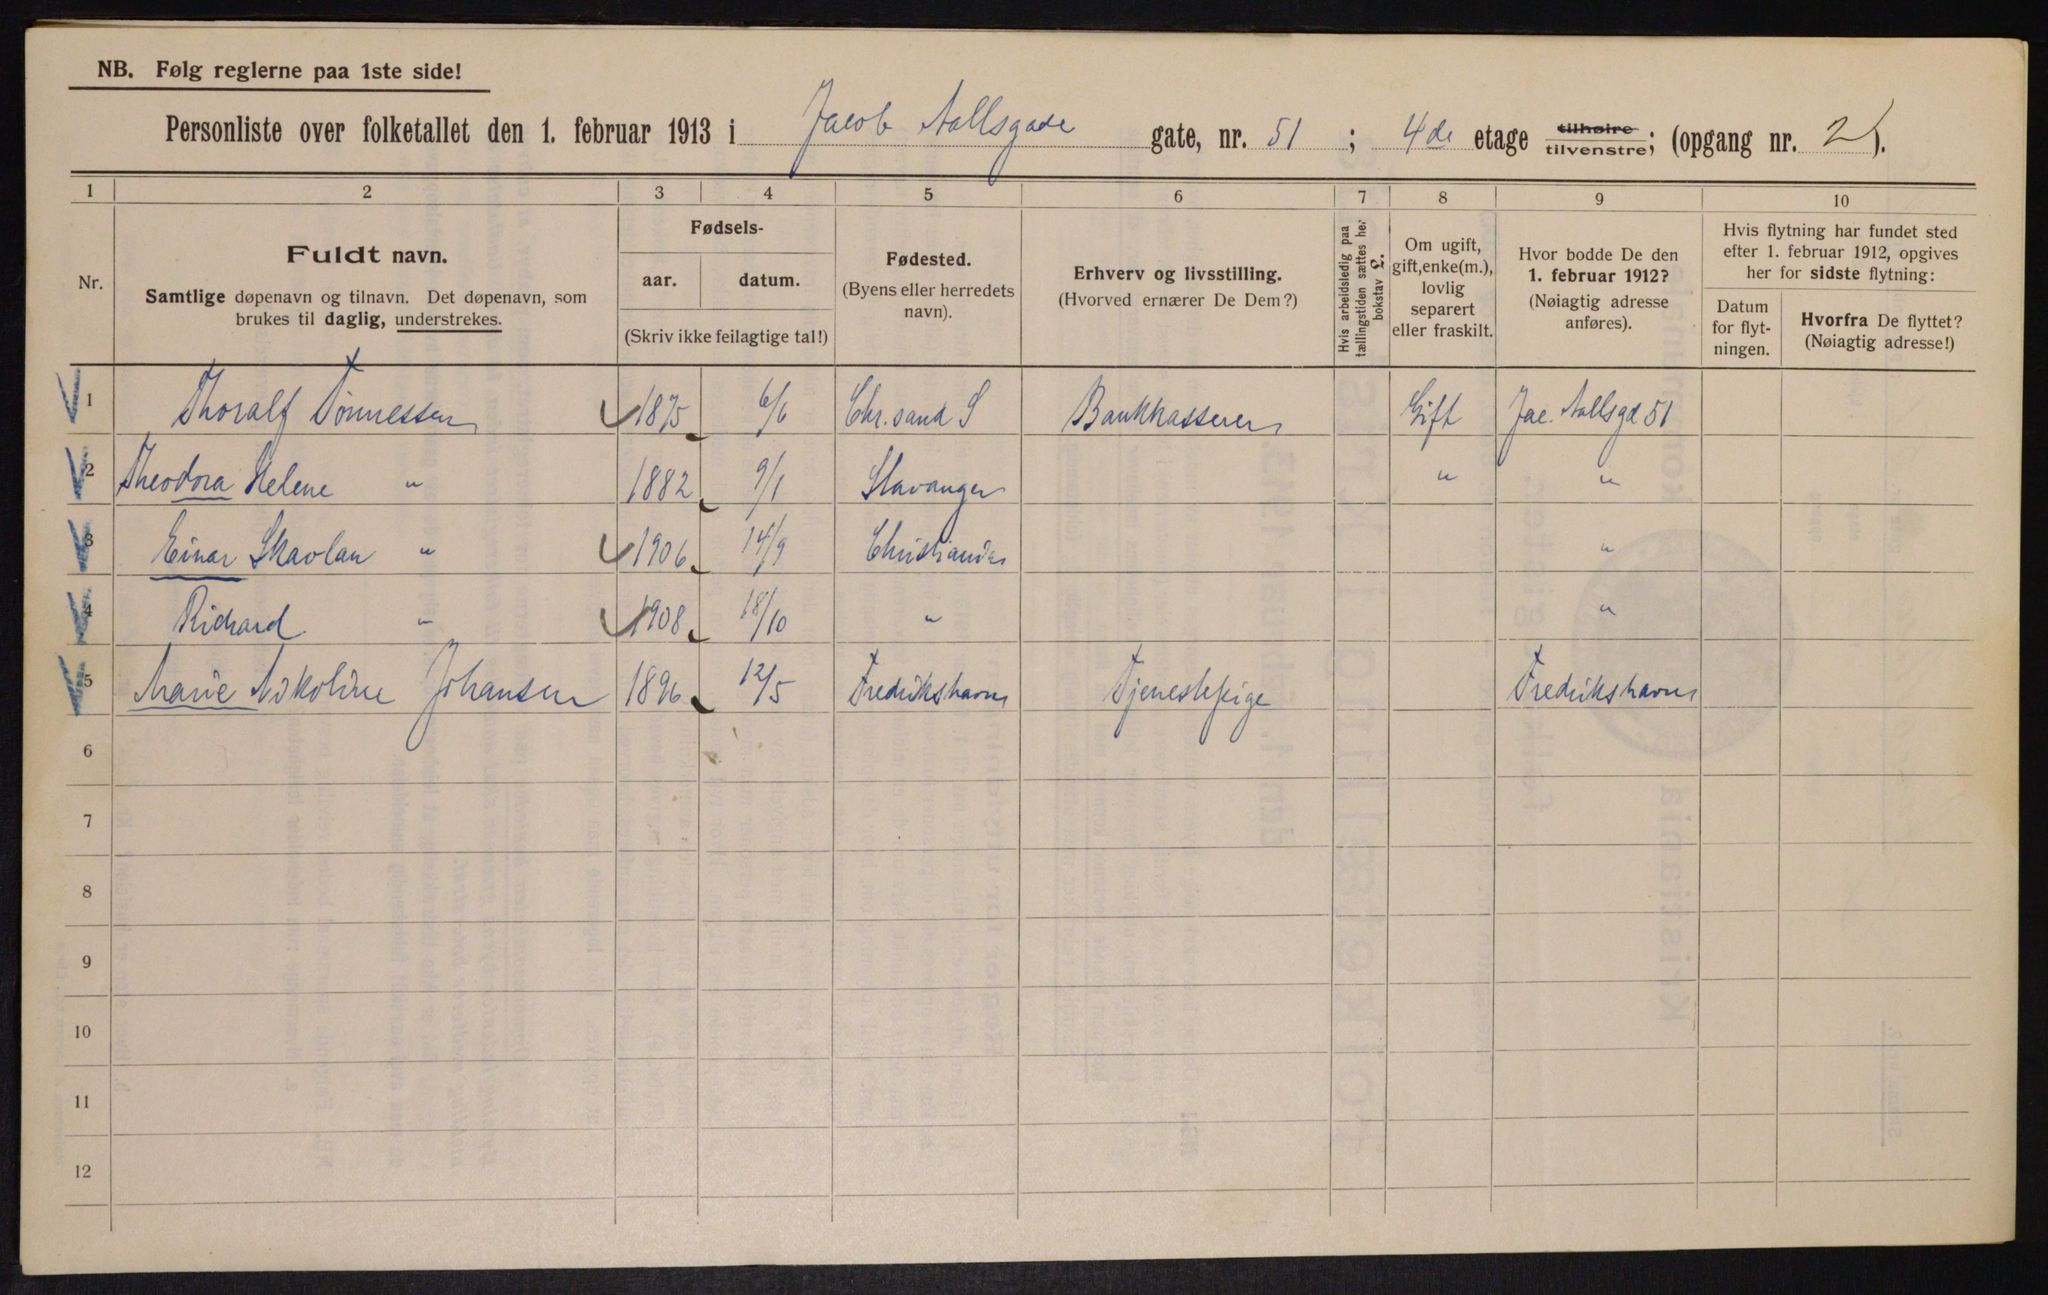 NB. Følg reglerne paa 1ste side!
Personliste over folketallet den 1. februar 1913 i Jacob Aallsgade gate, nr. 51 ; 4de etage tilhøire tilvenstre; (opgang nr. 2).
1 2 3 4 5 6 7 8 9 10
Nr.
Fuldt navn.
Samtlige døpenavn og tilnavn. Det døpenavn, som
brukes til daglig, understrekes.
Fødsels-
aar. datum.
(Skriv ikke feilagtige tal!)
Fødested.
(Byens eller herredets
navn).
Erhverv og livsstilling.
(Hvorved ernærer De Dem?)
Hvis arbeidsledig paa
tællingstiden sættes her
bokstav L.
Om ugift,
gift, enke(m.),
lovlig
separert
eller fraskilt.
Hvor bodde De den
1. februar 1912?
(Nøiagtig adresse
anføres).
Hvis flytning har fundet sted
efter 1. februar 1912, opgives
her for sidste flytning:
Datum
for flyt-
ningen.
Hvorfra De flyttet?
(Nøiagtig adresse!)
1 Thoralf Tønnessen 1875 6/6 Chr.sand S Bankkasserer Gift Jac. Aallsgd 51
2 Theodora Helene " 1882 9/1 Stavanger " "
3 Einar Skavlan " 1906 14/9 Christiania "
4 Richard " 1908 18/10 " "
5 Marie Nikoline Johansen 1896 12/5 Fredrikshavn Tjenestepige Fredrikshavn
6
7
8
9
10
11
12